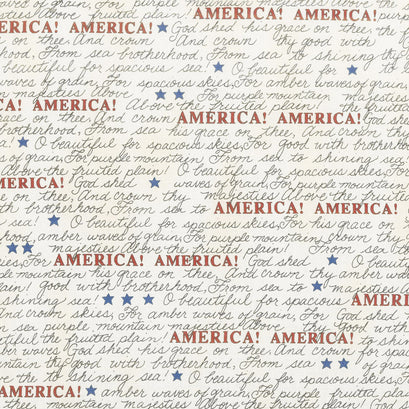 above the fruited plain! AMERICA! AMERICA!
AMERICA! AMERICA! God shed his grace on thee,
on thee, And crown thy good with
brotherhood, From sea to shining
beautiful for spacious sea! O beautiful for
waves of grain, For spacious skies, For amber waves of grain,
majesties Above For purple mountain majesties
AMERICA! Above the fruited plain!
grace on thee, And crown AMERICA! AMERICA! God shed
brotherhood, From sea his grace on thee, And crown thy
sea! O beautiful for spacious skies, For good with brotherhood
of grain, For purple mountain From sea to shining sea
Above the fruited plain! O beautiful for spacious skies, For
AMERICA! God shed waves of grain, For purple mountain
on thee, And crown thy majesties Above the fruited plain!
with brotherhood, From sea to AMERICA! AMERICA!
sea! O beautiful for spacious skies, For his grace on
amber waves of grain, For purple mountain crown thy
majesties Above the fruited plain! From sea
For AMERICA! AMERICA! God shed O beautiful
mountain his grace on thee, And crown thy amber waves
plain! Good with brotherhood, From sea to majesties Above
shining sea! O beautiful for spacious AMERICA!
And crown skies, For amber waves of grain, For God shed
sea purple mountain majesties Above thy good with
beautiful the fruited plain! AMERICA! AMERICA! to shining
amber waves God shed his grace on thee, And crown for spacious
mountain thy good with brotherhood, From sea of grain,
the to shining sea! O beautiful for spacious skies,
AMERICA! amber waves of grain, For purple mountain
thee, mountain majesties Above the fruited plain!